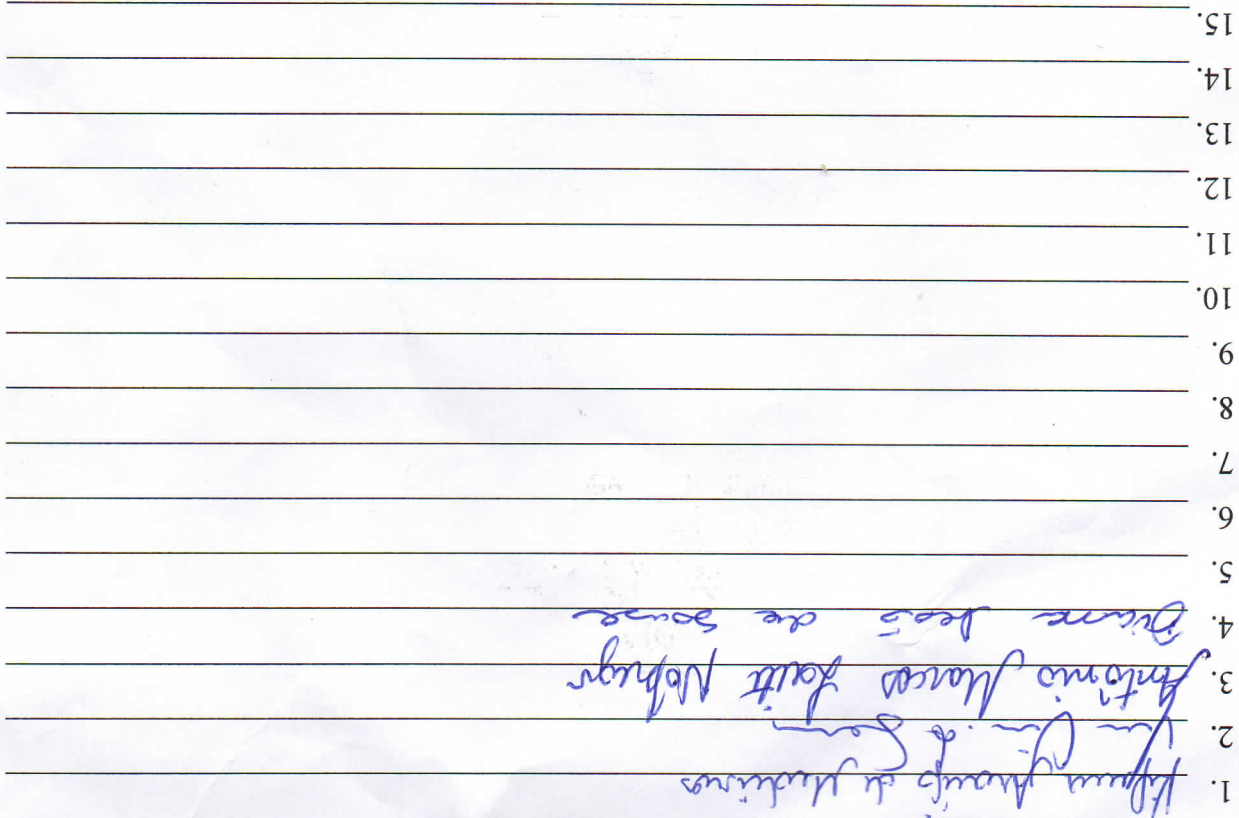 1. Araújo de Medeiros
2.
3. Antônio Marcos Leite Nobrega
4. Leão de Souza
5.
6.
7.
8.
9.
10.
11.
12.
13.
14.
15.